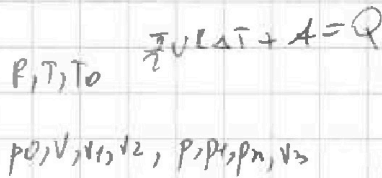 i/2 νRΔT + A = Q
P, T, T0
p0, V, V1, V2, p, p1, pn, V3